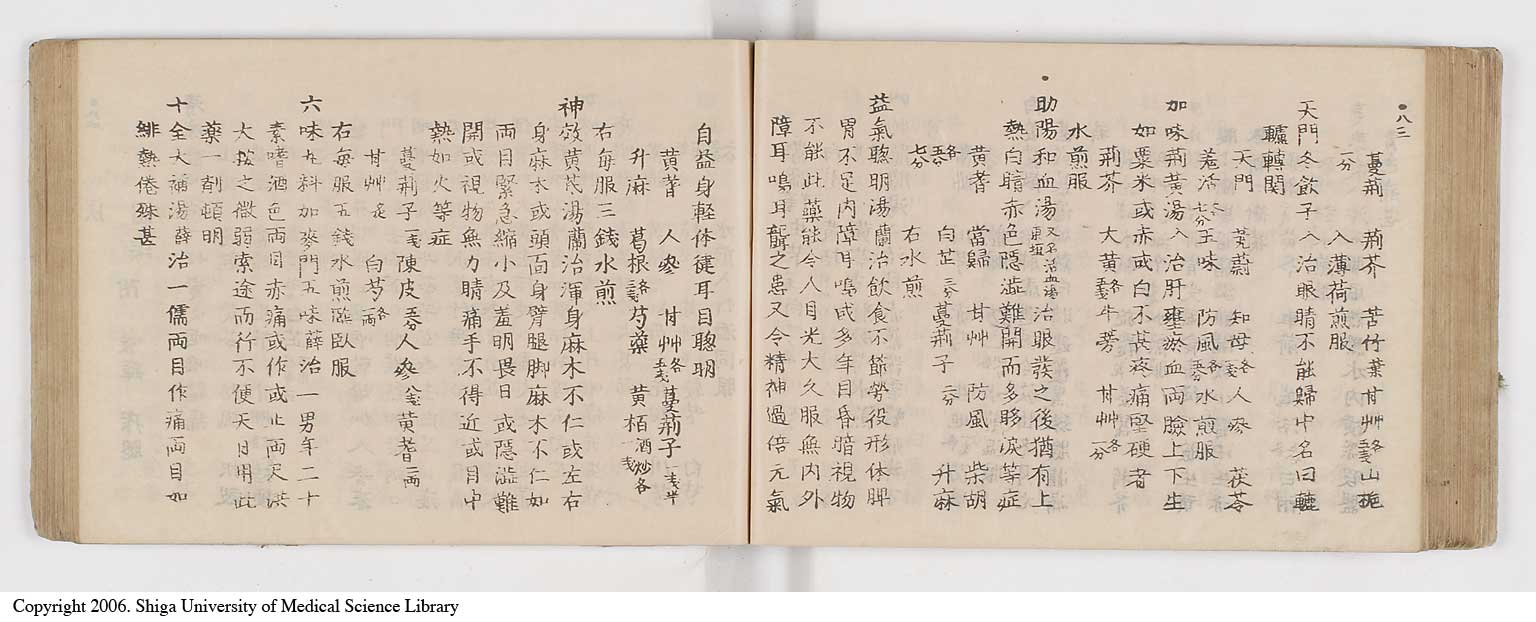 八三
蔓荊 荊芥 苦竹葉 甘艸各五戔 山梔
一分 入薄荷煎服
天門冬飲子 入 治眼睛不能歸中名曰轆
轤轉関
天門 茺蔚 知母各五戔 人參 茯苓
羗活各七分 五味 防風各五分 水煎服
加味荊黃湯 入 治肝壅瘀血両瞼上下生
如粟米或赤或白不甚疼痛堅硬者
荊芥 大黃各五戔 牛蒡 甘艸各一分
水煎服
助陽和血湯 治眼發之後猶有上
熱白睛赤色隱澁難開而多眵淚等症
黃耆 當歸 甘艸 防風 柴胡
各五分 白芷三分 蔓荊子二分 升麻
七分 右水煎
益氣聰明湯 蘭 治飲食不節勞役形体脾
胃不足内障耳鳴或多年目昏暗視物
不能此藥能令人目光大久服無内外
障耳鳴耳聾之患又令精神過倍元氣
自益身軽体健耳目聰明
黃耆 人參 甘艸各五戔 蔓荊子一戔半
升麻 葛根各三戔 芍藥 黃栢酒炒各一戔
右每服三錢水煎
神效黃芪湯 蘭 治渾身麻木不仁或左右
身麻木或頭面身臂腿脚麻木不仁如
両目緊急縮小及羞明畏日或隱澁難
開或視物無力睛痛手不得近或目中
熱如火等症
蔓荊子一戔 陳皮五分 人參八戔 黃耆二両
甘艸 白芍各一両
右每服五錢水煎臨臥服
六味丸料加麥門五味 薛 治一男年二十
素嗜酒色両目赤痛或作或止両尺洪
大按之微弱索途而行不便天日用此
藥一劑頓明
十全大補湯 薛 治一儒両目作痛両目如
緋熱倦殊甚
Copyright 2006. Shiga University of Medical Science Library